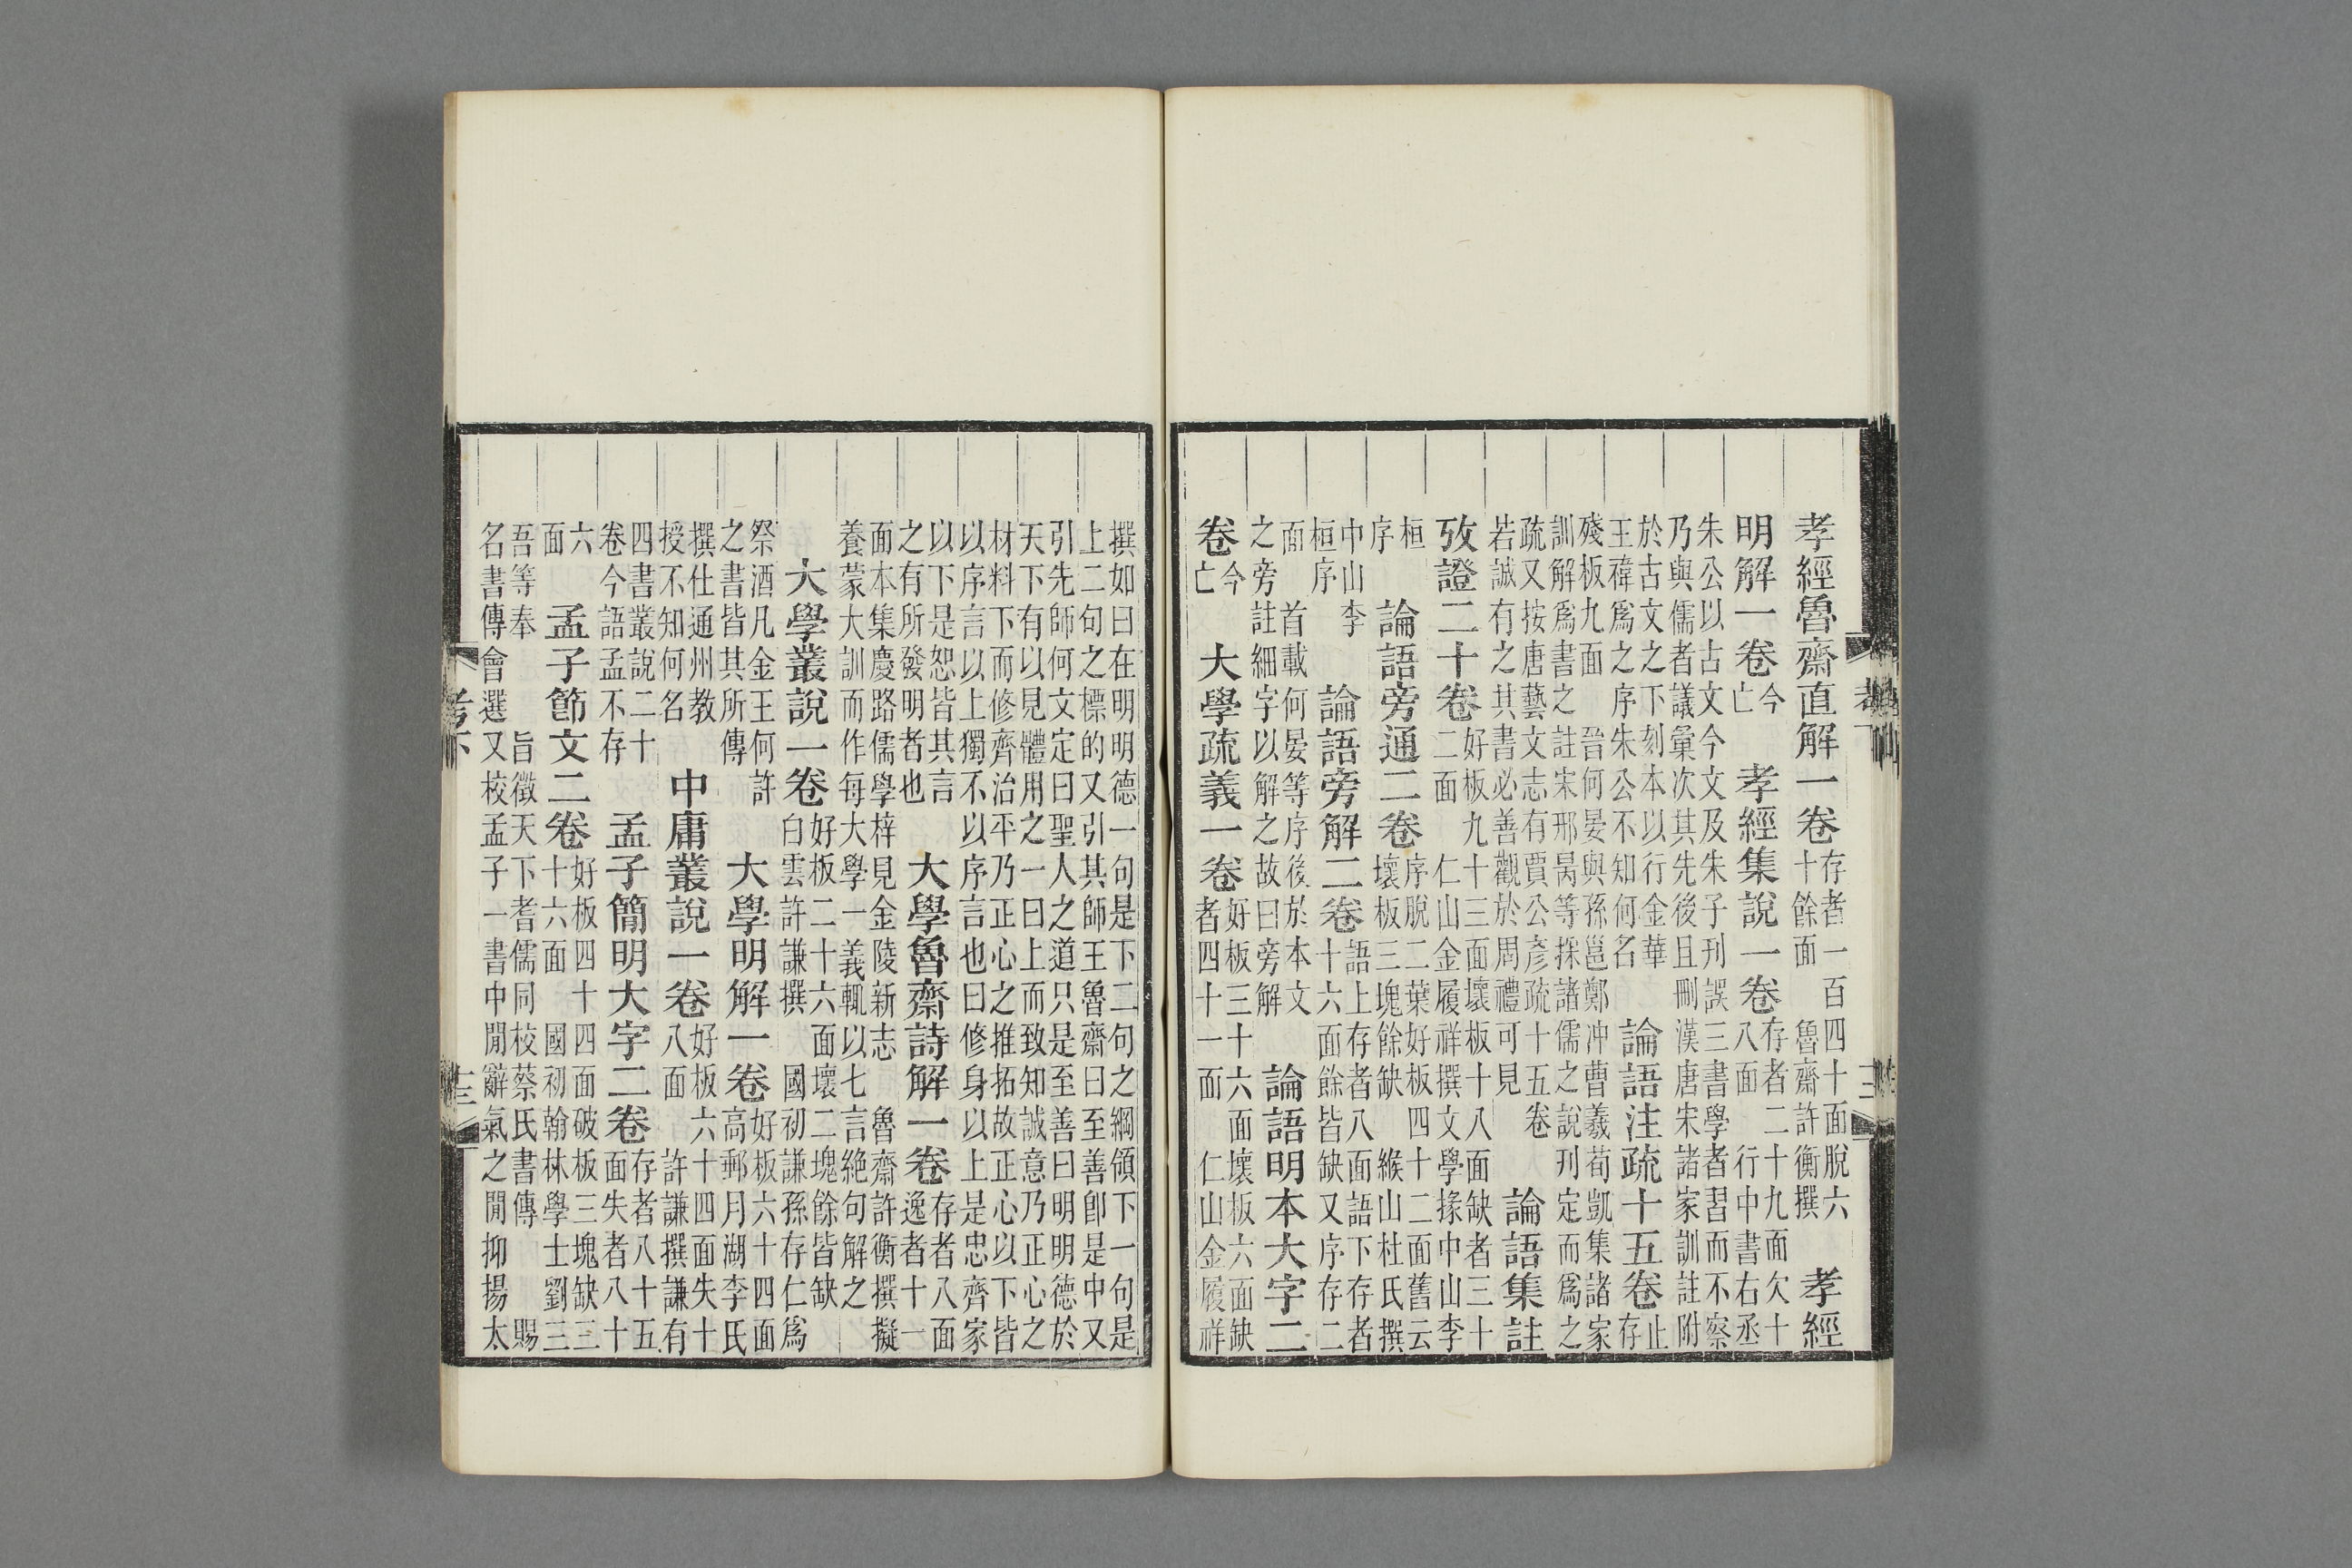 孝經魯齋直解一卷存者一百四十面脫六十餘面　魯齋許衡撰　孝經
明解一卷今亡　孝經集說一卷存者二十九面欠十八面　行中書右丞
朱公以古文今文及朱子刊誤三書學者習而不察乃與儒者議彙次其先後且刪漢唐宋諸家訓註附
於古文之下刻本以行金華王禕爲之序朱公不知何名　論語注疏十五卷止存
殘板九面　晉何晏與孫邕鄭冲曹羲荀凱集諸家訓解爲書之註宋邢昺等採諸儒之說刊定而爲之
疏又按唐藝文志有賈公彥疏十五卷若誠有之其書必善觀於周禮可見　論語集註
攷證二十卷好板九十三面壞板十八面缺者三十二面　仁山金履祥撰文學掾中山李
桓序　論語旁通二卷序脫二葉好板四十二面舊云壞板三塊餘缺　緱山杜氏撰
中山李桓序　論語旁解二卷語上存者八面語下存者十六面餘皆缺又序存二
面　首載何晏等序後於本文之旁註細字以解之故曰旁解　論語明本大字二
卷今亡　大學疏義一卷好板三十六面壞板六面缺者四十一面　仁山金履祥
撰如曰在明明德一句是下二句之綱領下一句是上二句之標的又引其師王魯齋曰至善卽是中又
引先師何文定曰聖人之道只是至善曰明明德於天下有以見體用之一曰上而致知誠意乃正心之
材料下而修齊治平乃正心之推拓故正心以下皆以序言以上獨不以序言也曰修身以上是忠齊家
以下是恕皆其言之有所發明者也　大學魯齋詩解一卷存者八面逸者十一
面本集慶路儒學梓見金陵新志　魯齋許衡撰擬養蒙大訓而作每大學一義輒以七言絕句解之
大學叢說一卷好板二十六面壞二塊餘皆缺白雲許謙撰　國初謙孫存仁爲
祭酒凡金王何許之書皆其所傳　大學明解一卷好板六十四面高郵月湖李氏
撰仕通州教授不知何名　中庸叢說一卷好板六十四面失十八面　許謙撰謙有
四書叢說二十卷今語孟不存　孟子簡明大字二卷存者八十五面失者八十
六面　孟子節文二卷好板四十四面破板三塊缺三十六面　國初翰林學士劉三
吾等奉　旨徵天下耆儒同校蔡氏書傳　賜名書傳會選又校孟子一書中閒辭氣之閒抑揚太
考下
十三